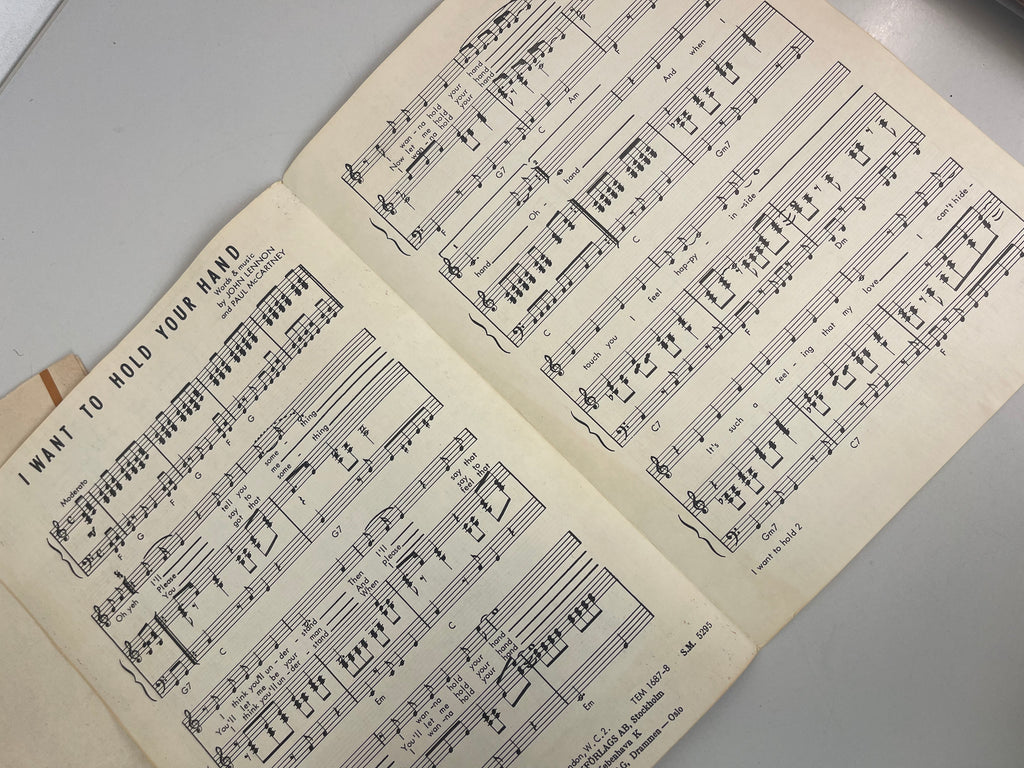 I WANT TO HOLD YOUR HAND
Words & music
by JOHN LENNON
and PAUL McCARTNEY
Moderato
F G F G F G
Oh yeh I'll tell you some - thing
Please say to me
You got that some - thing
G7 C G7
I think you'll un - der stand Then I'll say that
You'll let me be your man And please say to
I think you'll un - der stand When I'll feel that
Em C
hold your hand
You'll let me hold your hand
wan - na hold your hand
Em
ndon, W. C. 2.
FÖRLAGS AB, Stockholm
København K
Drammen — Oslo
TEM 1687-8
S.M. 5295
I wan - na hold your hand
Now let me hold your hand
I wan - na hold your hand
G7 C Am
hand Oh - hand And when I
C Gm7
touch you I feel hap - py in - side
C7 F Dm
It's such a feel - ing that my love I can't hide -
Gm7 C7 F
I want to hold 2